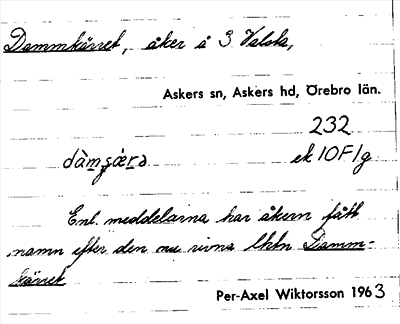 Dammkärret, åker å 3 Valsta,
Askers sn, Askers hd, Örebro län.
232
dàm̥ʂæ̀rə ek 10F1g
Enl. meddelarna har åkern fått
namn efter den nu rivna lht Damm-
kärret
Per-Axel Wiktorsson 1963